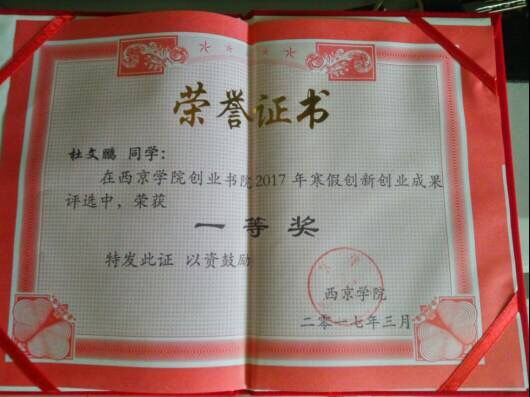 荣誉证书
杜文鹏 同学：
在西京学院创业书院2017年寒假创新创业成果
评选中，荣获
一等奖
特发此证 以资鼓励
西京学院
二零一七年三月